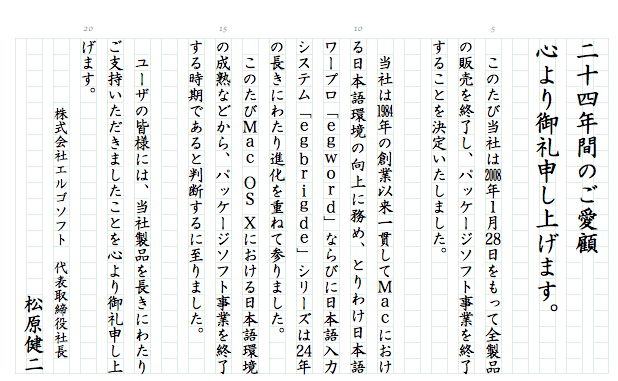 二十四年間のご愛顧
心より御礼申し上げます。
このたび当社は2008年1月28日をもって全製品
の販売を終了し、パッケージソフト事業を終了
することを決定いたしました。
当社は1984年の創業以来一貫してMacにおけ
る日本語環境の向上に務め、とりわけ日本語
ワープロ「egword」ならびに日本語入力
システム「egbrigde」シリーズは24年
の長きにわたり進化を重ねて参りました。
このたびMac OS Xにおける日本語環境
の成熟などから、パッケージソフト事業を終了
する時期であると判断するに至りました。
ユーザの皆様には、当社製品を長きにわたり
ご支持いただきましたことを心より御礼申し上
げます。
株式会社エルゴソフト 代表取締役社長
松原健二
5
10
15
20